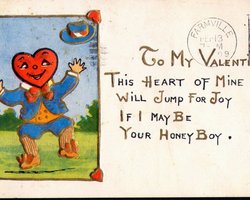 FARMVILLE
To My Valenti
This Heart of Mine
Will Jump For Joy
If I May Be
Your Honey Boy.